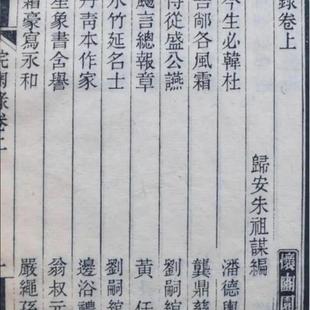 錄卷上
歸安朱祖謀編
今生必韓杜 潘德輿
各風霜 龔鼎孳
侍從盛公讌 劉嗣綰
颺言總報章 黃任
水竹延名士 劉嗣綰
丹青本作家 邊浴禮
星象書含譽 翁叔元
霜豪寫永和 嚴繩孫
錄卷